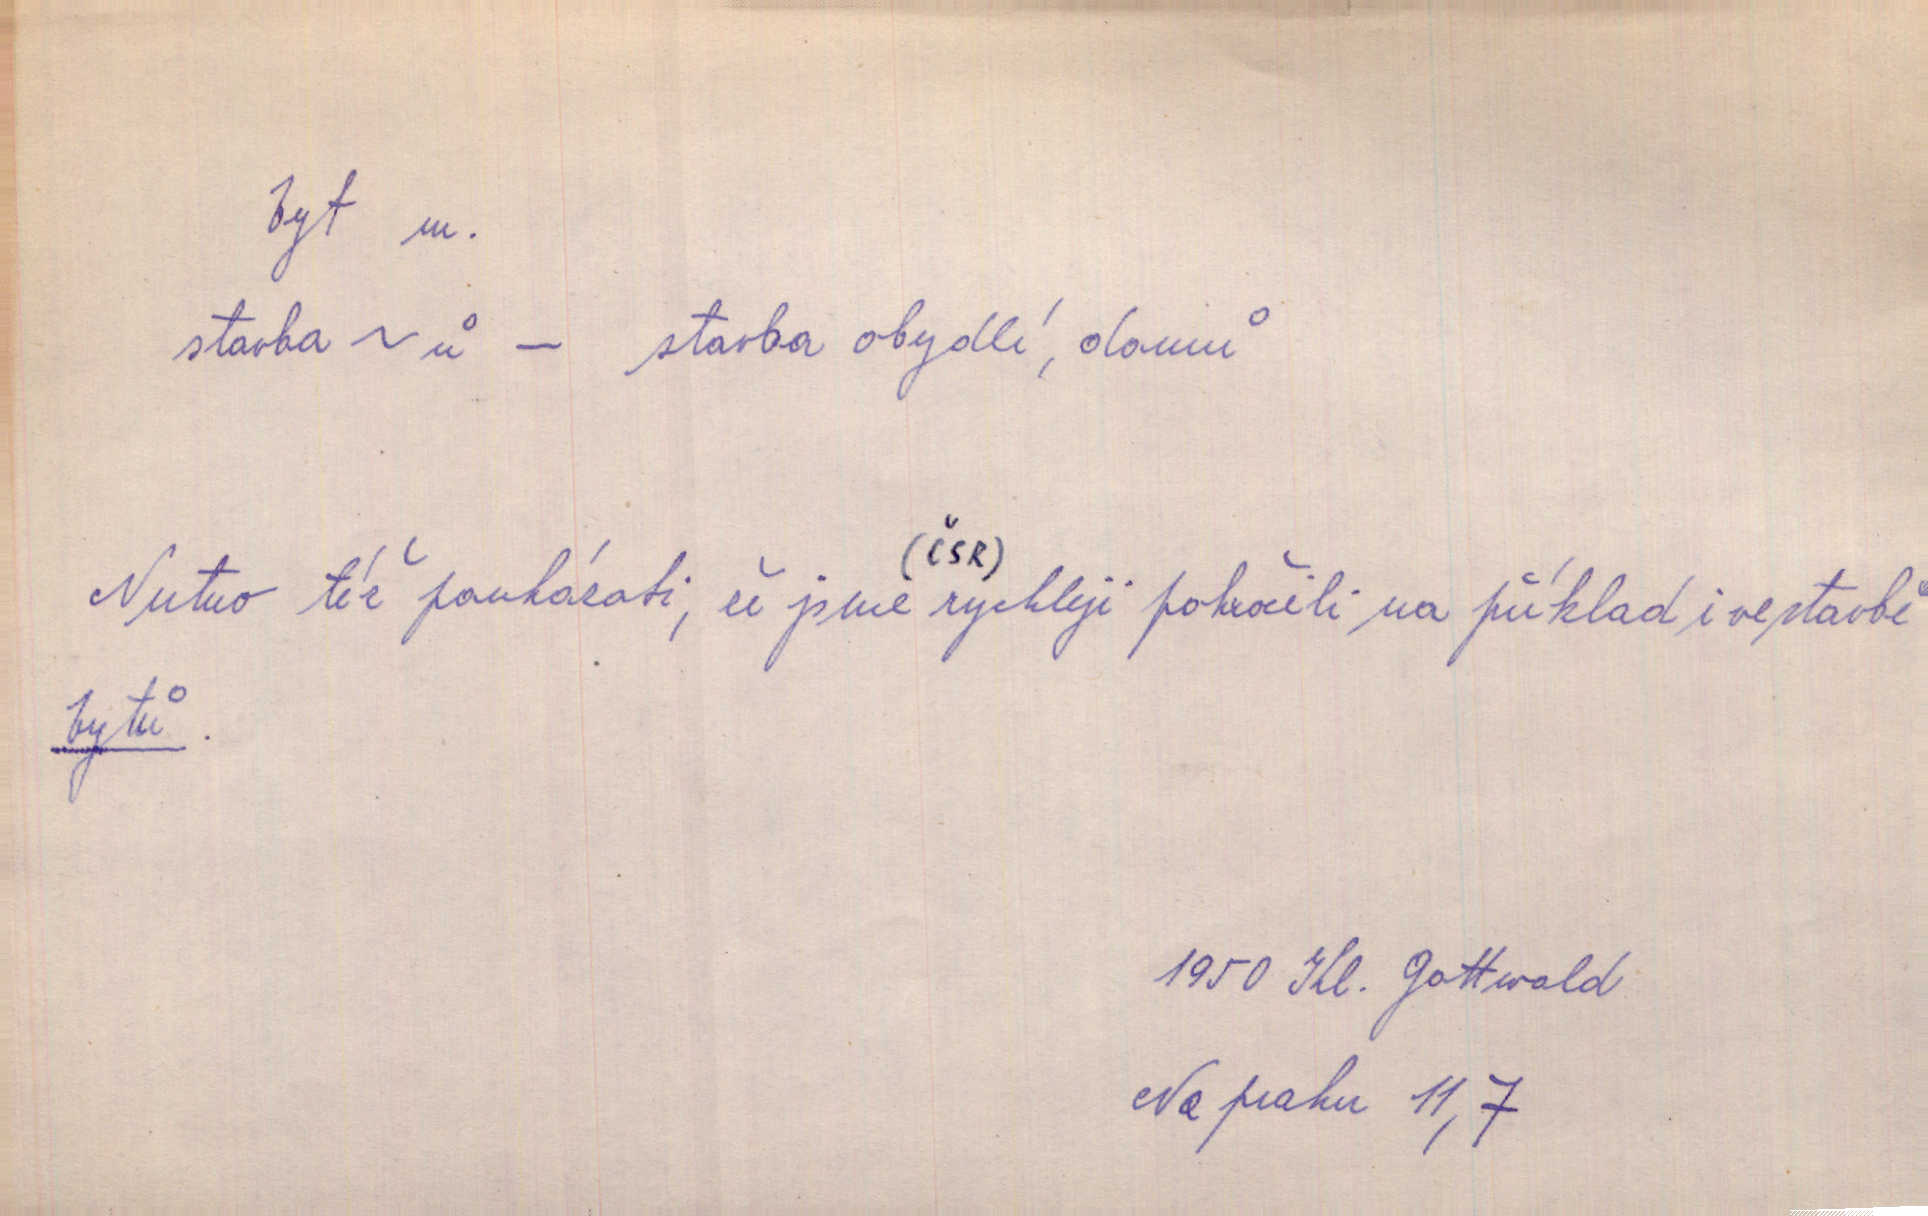 byt m.
stavba ~ů — stavba obydlí, domů
(ČSR)
Nutno též poukázati, že jsme rychleji pokročili na příklad i ve stavbě
bytů.
1950 Kl. Gottwald
Na prahu 11,7